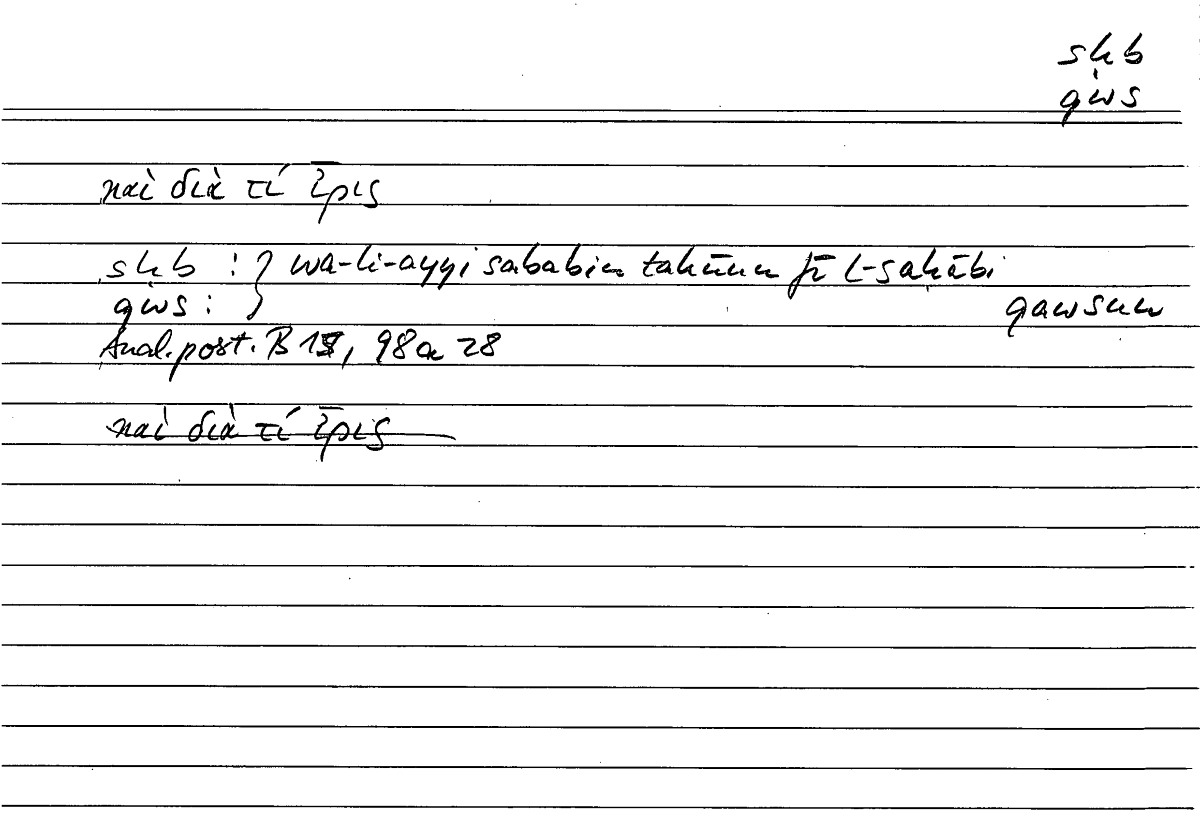 sḥb
qws
καὶ διὰ τί ἶρις
sḥb : } wa-li-ayyi sababin takūnu fī l-saḥābi
qws : } qawsun
Anal. post. B 15, 98a 28
καὶ διὰ τί ἶρις